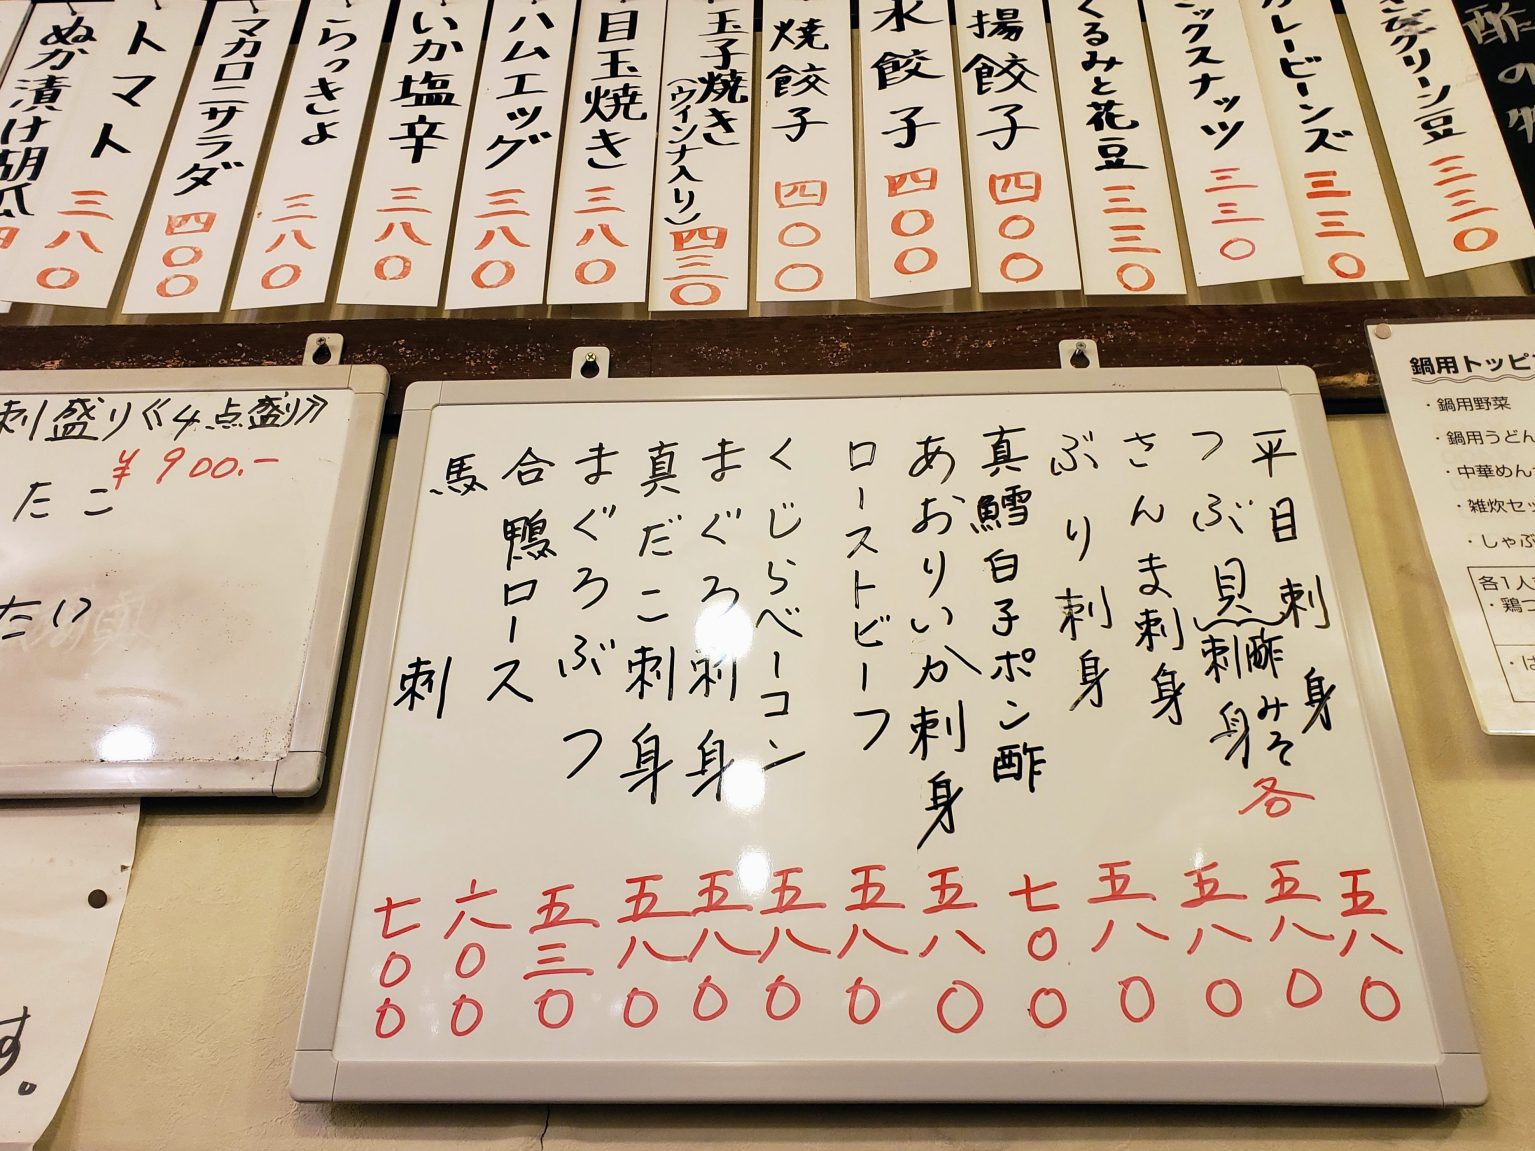 カレービーンズ 三三〇
くるみと花豆 三三〇
揚餃子 四〇〇
水餃子 四〇〇
焼餃子 四〇〇
玉子焼き(ウインナ入り) 四三〇
目玉焼き 三八〇
ハムエッグ 三八〇
いか塩辛 三八〇
らっきょ 三八〇
マカロニサラダ 四〇〇
トマト 三八〇
ぬか漬け胡瓜
平目刺身 五八〇
つぶ貝 酢みそ 刺身 各 五八〇
さんま刺身 五八〇
ぶり刺身 五八〇
真鱈白子ポン酢 七〇〇
あおりいか刺身 五八〇
ローストビーフ 五八〇
くじらベーコン 五八〇
まぐろ刺身 五八〇
真だこ刺身 五八〇
まぐろぶつ 五三〇
合鴨ロース 六〇〇
馬刺 七〇〇
刺盛り《4点盛り》
¥900.-
たこ
たい
す。
鍋用トッピ
・鍋用野菜
・鍋用うどん
・中華めん
・雑炊セッ
・しゃぶ
各1人
・鶏つ
・は